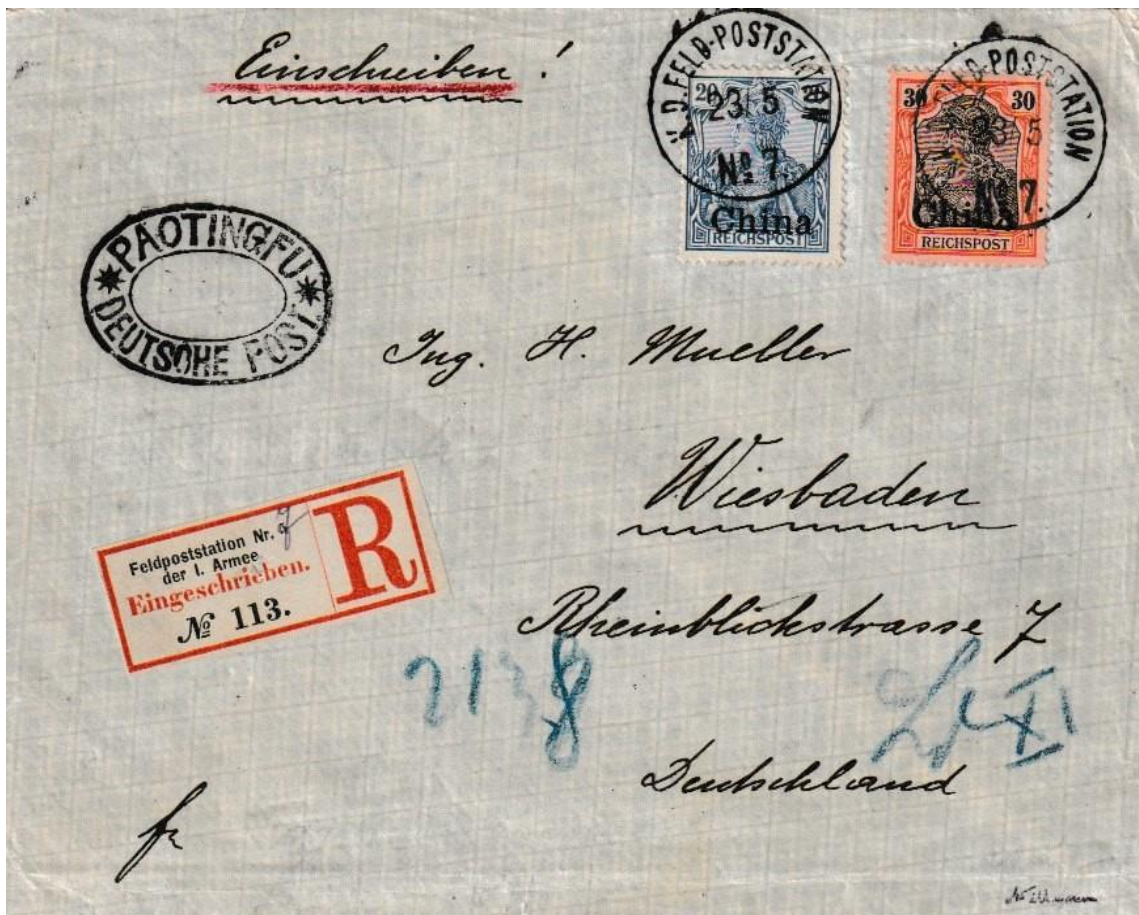 Einschreiben!
K.D. FELD-POSTSTATION
23 5
No 7.
20
China
REICHSPOST
FELD-POSTSTATION
23 5
No 7.
30 30
China
REICHSPOST
*PAOTINGFU*
DEUTSCHE POST.
Ing. H. Mueller
Wiesbaden
Rheinblickstrasse 7
Deutschland
Feldpoststation Nr. 7
der I. Armee
Eingeschrieben.
№ 113.
R
XI